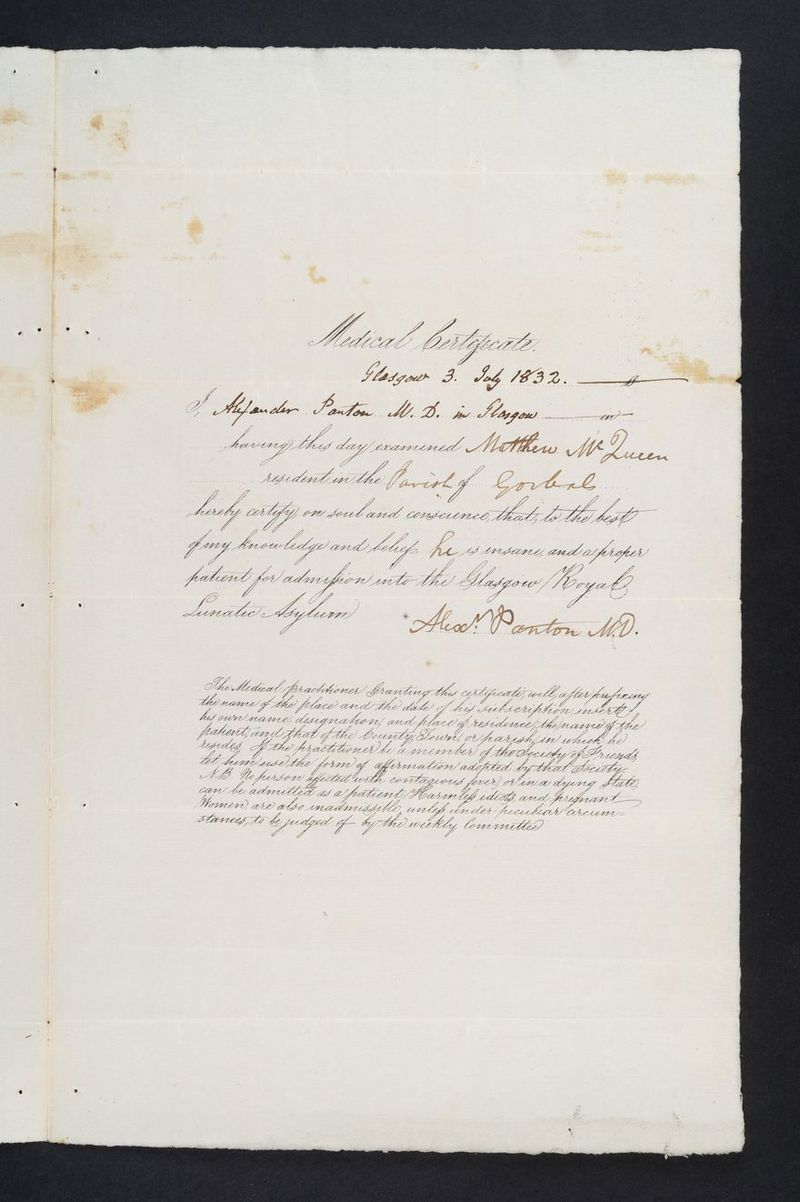 Medical Certificate.
Glasgow 3. July 1832.
I, Alexander Panton M. D. in Glasgow
having this day examined Matthew McQueen
resident in the Parish of Gorbals
hereby certify, on soul and conscience, that, to the best
of my knowledge and belief he is insane, and a proper
patient for admission into the Glasgow Royal
Lunatic Asylum
Alexr. Panton M.D.
The Medical practitioner Granting this certificate, will, after prefixing
the name of the place and the date of his subscription, insert
his own name, designation, and place of residence, the name of the
patient, and that of the County, Town, or parish, in which he
resides. If the practitioner be a member of the Society of Friends,
let him use the form of affirmation adopted by that Society.
N.B. No person affected with contagious fever or in a dying state,
can be admitted as a patient, Harmless idiots, and pregnant
Women are also inadmissible, unless under peculiar circum=
stances, to be judged of by the weekly Committee